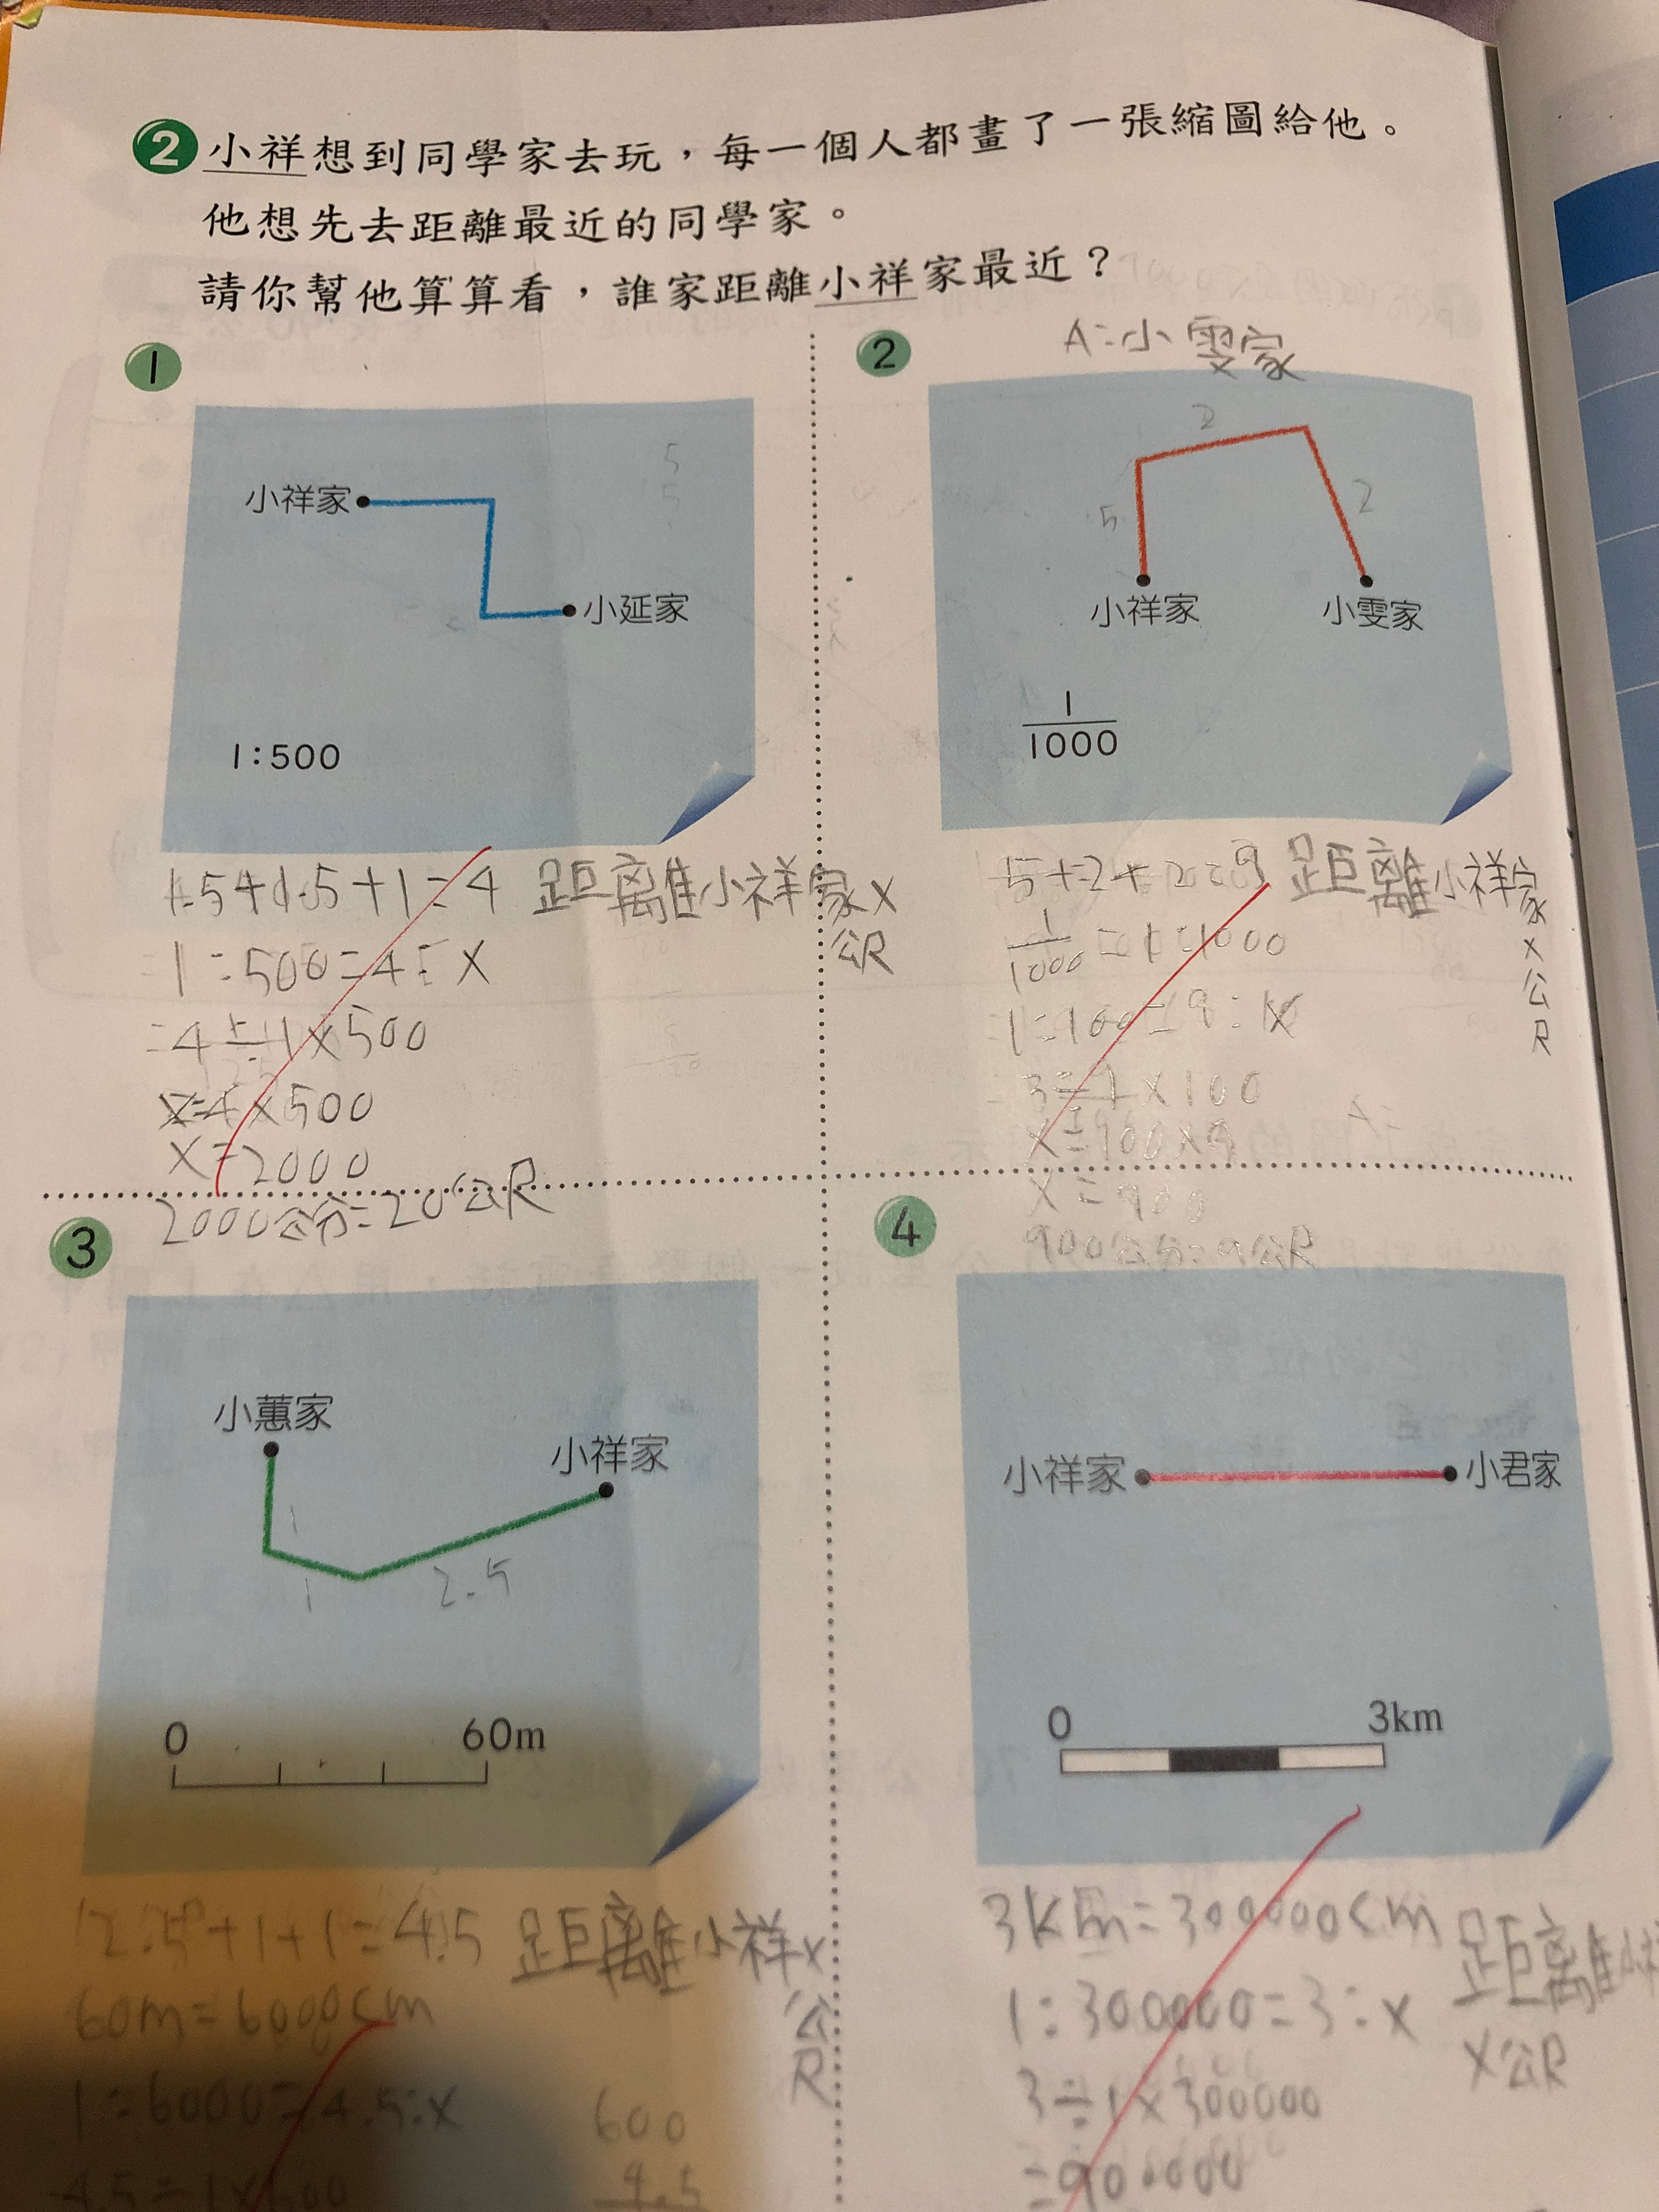 2 小祥想到同學家去玩，每一個人都畫了一張縮圖給他。
他想先去距離最近的同學家。
請你幫他算算看，誰家距離小祥家最近？
A:小雯家
1
5
5
小祥家
小延家
1:500
1.5+1.5+1=4 距離小祥家x
公尺
1:500=4:x
=4÷1×500
x=4×500
x=2000
2000公分=20公尺
2
2
5
2
小祥家
小雯家
1/1000
5+2+2=9 距離小祥家
x公尺
1/1000=1:1000
1:100=9:x
x=900
900公分=9公尺
3
小蕙家
小祥家
1
1
2.5
0
60m
2.5+1+1=4.5 距離小祥x
公尺
60m=6000cm
1:6000=4.5:x
600
4.5
4.5÷1×600
4
小祥家
小君家
0
3km
3km=300000cm 距離小祥
x公尺
1:300000=3:x
3÷1×300000
=900000